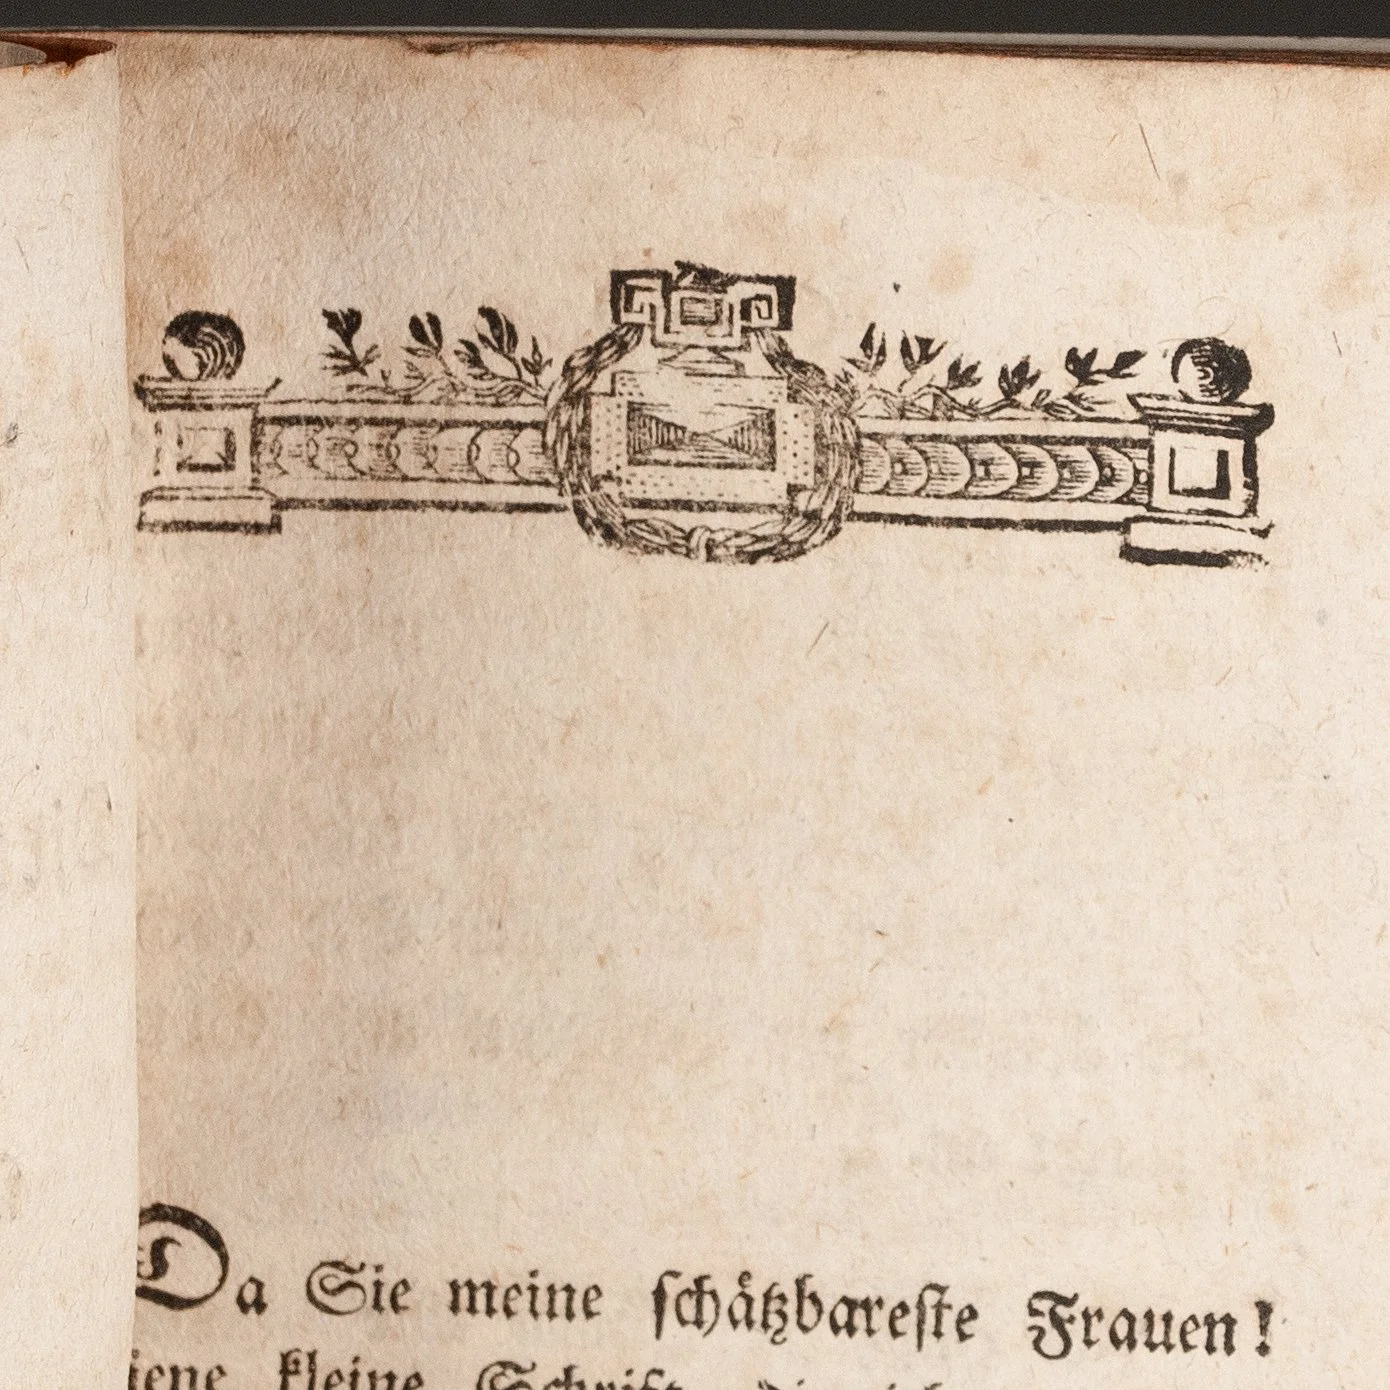 Da Sie meine ſchätzbareſte Frauen!
jene kleine Schrift